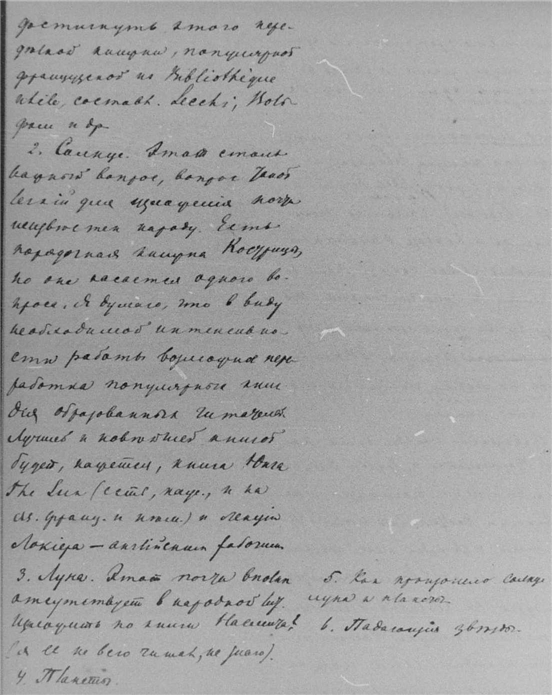 достигнуть этого пере-
дѣлкой книжки, популярной
французской из Bibliothèque
utile, составл. Secchi, Воль-
фом и др
2. Солнце. Этот столь
важный вопрос, вопрос такой
легкий для изложенія почти
неизвѣстен народу. Есть
порядочная книжка
но она касается одного во-
проса. Я думаю, что в виду
необходимой интенсивно-
сти работы возможна пере-
работка популярных книг
для образованных читателей
Лучшей и новѣйшей книгой
будет, кажется, книга Юнга
The Sun (есть, каж., и на
яз. франц. и нѣм.) и лекціи
Локіера — англійским рабочим
3. Луна. Этот почти вполн
отсутствует в народной лит.
Изложить по книге
(я ее не всего читал, не знаю).
4. Планеты.
5. Как произошло солнце
луна и планеты
6. Падающія звѣзды.